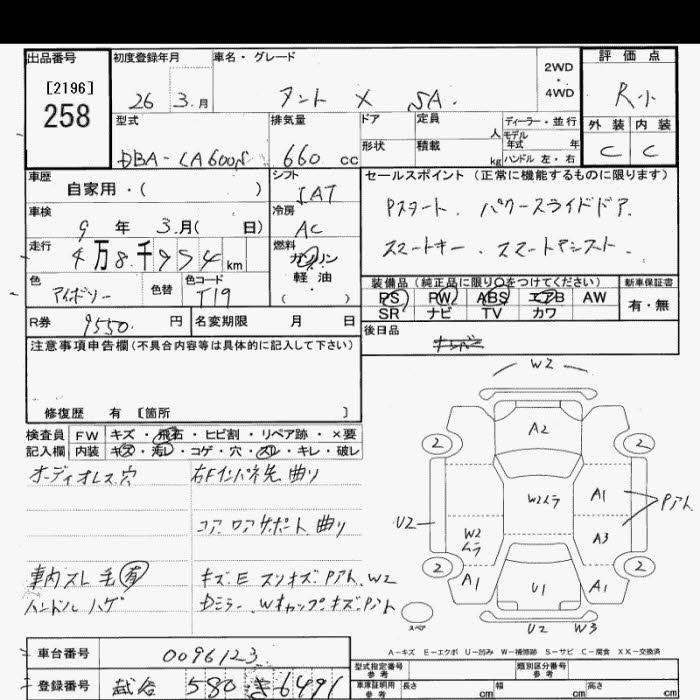 出品番号 初度登録年月 車名・グレード 2WD 評価点
[2196] ・
258 26 3.月 タント X SA. 4WD R小
型式 排気量 ドア 定員 人 ディーラー・並行 外装 内装
モデル年式 年
DBA-LA600S 660 cc 形状 積載 kg ハンドル 左・右 C C
車歴 自家用・( ) シフト セールスポイント(正常に機能するものに限ります)
車検 9 年 3.月( 日) 冷房 AC Pスタート. パワースライドドア.
走行 4万8千954 km 燃料 ガソリン スマートキー. スマートアシスト.
軽油
( )
色 色替 色コード T19 装備品(純正品に限り○をつけてください) 新車保証書
PS PW ABS エアB AW 有・無
SR ナビ TV カワ
R券 9550. 円 名変期限 月 日 後日品
注意事項申告欄(不具合内容等は具体的に記入して下さい)
修復歴 有 [箇所 ]
検査員 FW キズ・飛石・ヒビ割・リペア跡・×要
記入欄 内装 キズ・汚レ・コゲ・穴・スレ・キレ・破レ
オーディオレス穴 右Fインパネ先 曲り
コア ロアサポート 曲り
車内スレ 毛有 キズ.E スリキズ.Pアト.W2
ハンドル ハゲ Dミラー.Wキャップ.キズ.Pアト
W2
2 A2 2
W2ムラ A1 Pアト
U2 W2ムラ A3
2 A1 U1 A1 2
スペア U2 W3
A-キズ E-エクボ U-凹み W-補修跡 S-サビ C-腐食 XX-交換済
車台番号 0096123 型式指定番号 参考 類別区分番号 参考
登録番号 越谷 580 き 6491 車庫証明用 参考 長さ cm 幅 cm 高さ cm